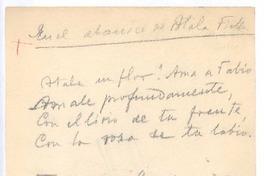 En el abanico de Atala
Atala en flor! Ama a Fabio
Amale profundamente,
Con el lirio de tu frente,
Con la rosa de tu labio.